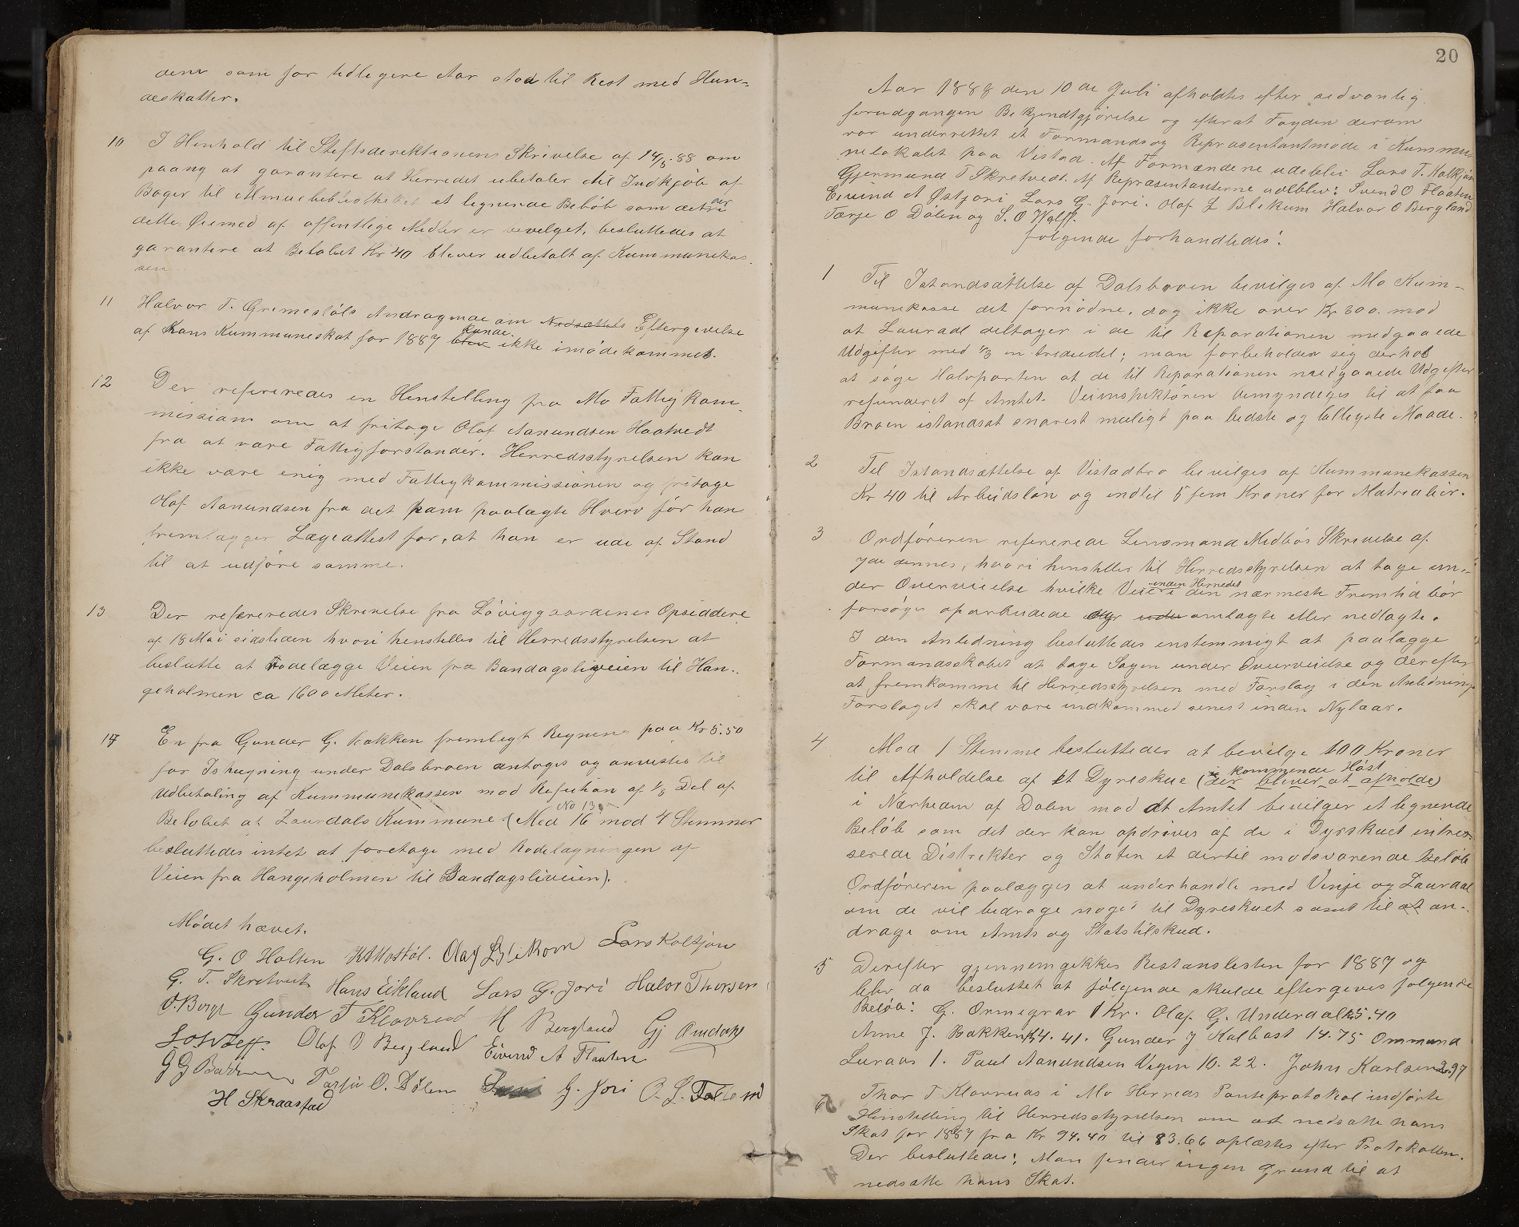 dem som for tidligere Aar stod til Rest med Hun-
deskatter.
10 I Henhold til Stiftsdirektionens Skrivelse af 14/5 88 om
paang at garantere at Herredet udbetaler til Indkjøb af
Bøger til Almuebibliotheket et lignende Beløb som det der
dette Øiemed af offentlige Midler er bevilget, besluttedes at
garantere at Beløbet Kr 40 blever udbetalt af Kummunekas-
sen
11 Halvor T. Grimesløls Andragende om Nedsættels Eftergivelse
af Hans Kummuneskat for 1887 blev kunde ikke imødekommes.
12 Der refereredes en Henstilling fra Mo Fattigkom-
missiom om at fritage Olaf Aanundsen Haatvedt
fra at være Fattigforstander. Herredsstyrelsen kan
ikke være enig med Fattigkommissionen og fritage
Olaf Aanundsen fra det ham paalagte Hverv før han
fremlægger Lægeattest for, at han er ude af Stand
til at udføre samme.
13 Der refereredes Skrivelse fra Løviggaardenes Opsiddere
af 18 Mai sidstleden hvori henstilles til Herredsstyrelsen at
beslutte at Rodelægge Veien fra Bandagsliveien til Han-
geholmen ca 1600 Meter.
14 En fra Gunder G. Bakken fremlagt Regning paa Kr 5.50
for Ishugning under Dalsbroen antoges og anvistes til
Udbetaling af Kummunekassen mod Refusion af 1/3 Del af
Beløbet at Laurdals Kummune (Med 16 mod 4 Stemmer
No 13
besluttedes intet at foretage med Rodelægningen af
Veien fra Hangeholmen til Bandagsliveien).
Mødet hævet.
G. O Holten K Mostøl. Olaf Lars Koltjøn
G. T. Skretveit Hans Eikland Lars G. Jori Halvor Thorsen
O. Borge Gunder T Klovreid H Bergland Gj Omdahl
Olaf O Bergland Eivind A Flaaten
G G Bakken Tarje O. Dølen G. Jori O. L.
H Skraastad
20
Aar 1888 den 10 de Juli afholdtes efter sedvanlig
forudgangen Bekjendtgjørelse og efterat Fogden derom
var underrettet et Formandsog Repræsentantmøde i Kummu-
nelokalet paa Vistad. Af Formændene udeblev Lars T. Kolkjøn
Gjermund T Skretvedt. Af Repræsentanterne udeblev: Svend O Flaaten
Eivind A Østjori Lars G. Jori. Olaf L Blekum Halvor O Bergland
Tarje O Dølen og S. O Wølf.
følgende forhandledes:
1 Til Istandsættelse af Dalsbroen bevilges af Mo Kum-
munekasse det fornødne, dog ikke over Kr 300. mod
at Laurdal deltager i de til Reparationen medgaaede
Udgifter med 1/3 en trediedel; man forbeholder sig derhos
at søge Halvparten af de til Reparationen medgaaede Udgifter
refunderet af Amtet. Veiinspektøren bemyndiges til at faa
Broen istandsat snarest muligt paa bedste og billigste Maade.
2 Til Istandsættelse af Vistadbro bevilges af Kummunekassen
Kr 40 til Arbeidsløn og indtil 5 fem Kroner for Materialier.
3 Ordføreren refererede Lensmand Midbøs Skrivelse af
7de dennes, hvori henstilles til Herredsstyrelsen at tage un-
der Overveielse hvilke Veie i inden Herredet den nærmeste Fremtid bør
forsøges oparbeidede og omlagte eller nedlagte.
I den Anledning besluttedes enstemmigt at paalægge
Formandsskabet at tage Sagen under Overveielse og derefter
at fremkomme til Herredsstyrelsen med Forslag i den Anledning.
Forslaget skal være indkommed senest inden Nytaar.
4 Mod 1 Stemme besluttedes at bevilge 100 Kroner
til Afholdelse af et Dyreskue (der kommende Høst blever at afholde)
i Nærheden af Dalen mod at Amtet bevilger et lignende
Beløb som det der kan opdrives af de i Dyrskuet intres-
serede Distrikter og Staten et dertil modsvarende Beløb
Ordføreren paalægges at underhandle med Vinje og Laurdal
om de vil bedrage noget til Dyreskuet samt til at an-
drage om Amts og Statstilskud.
5 Derefter gjennemgikkes Restanslisten for 1887 og
blev da besluttet at følgende skulde eftergives følgende
Beløb: G. Ormegrav 1 Kr. Olaf G. Underdal 5.40
Anne J. Bakken 4.41. Gunder J Kalbast 14.75 Ommund
Luraas 1. Paul Aanundsen Vegen 10.22. John Karlsen 3.97
6 Thor T Klovruas i Mo Herreds Panteprotokol indførte
Henstilling til Herredsstyrelsen om at nedsatte hans
Skat for 1887 fra Kr 94.40 til 83.66 oplæstes efter Protokollen.
Der besluttedes: Man finder ingen Grund til at
nedsatte hans Skat.